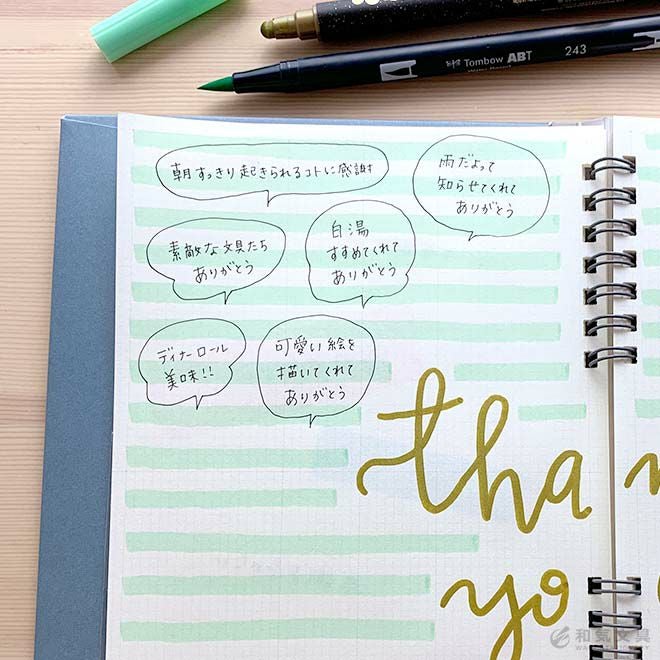 Tombow ABT
243
朝すっきり起きられるコトに感謝
雨だよって
知らせてくれて
ありがとう
素敵な文具たち
ありがとう
白湯
すすめてくれて
ありがとう
ディナーロール
美味!!
可愛い絵を
描いてくれて
ありがとう
tha
yo
和気文具